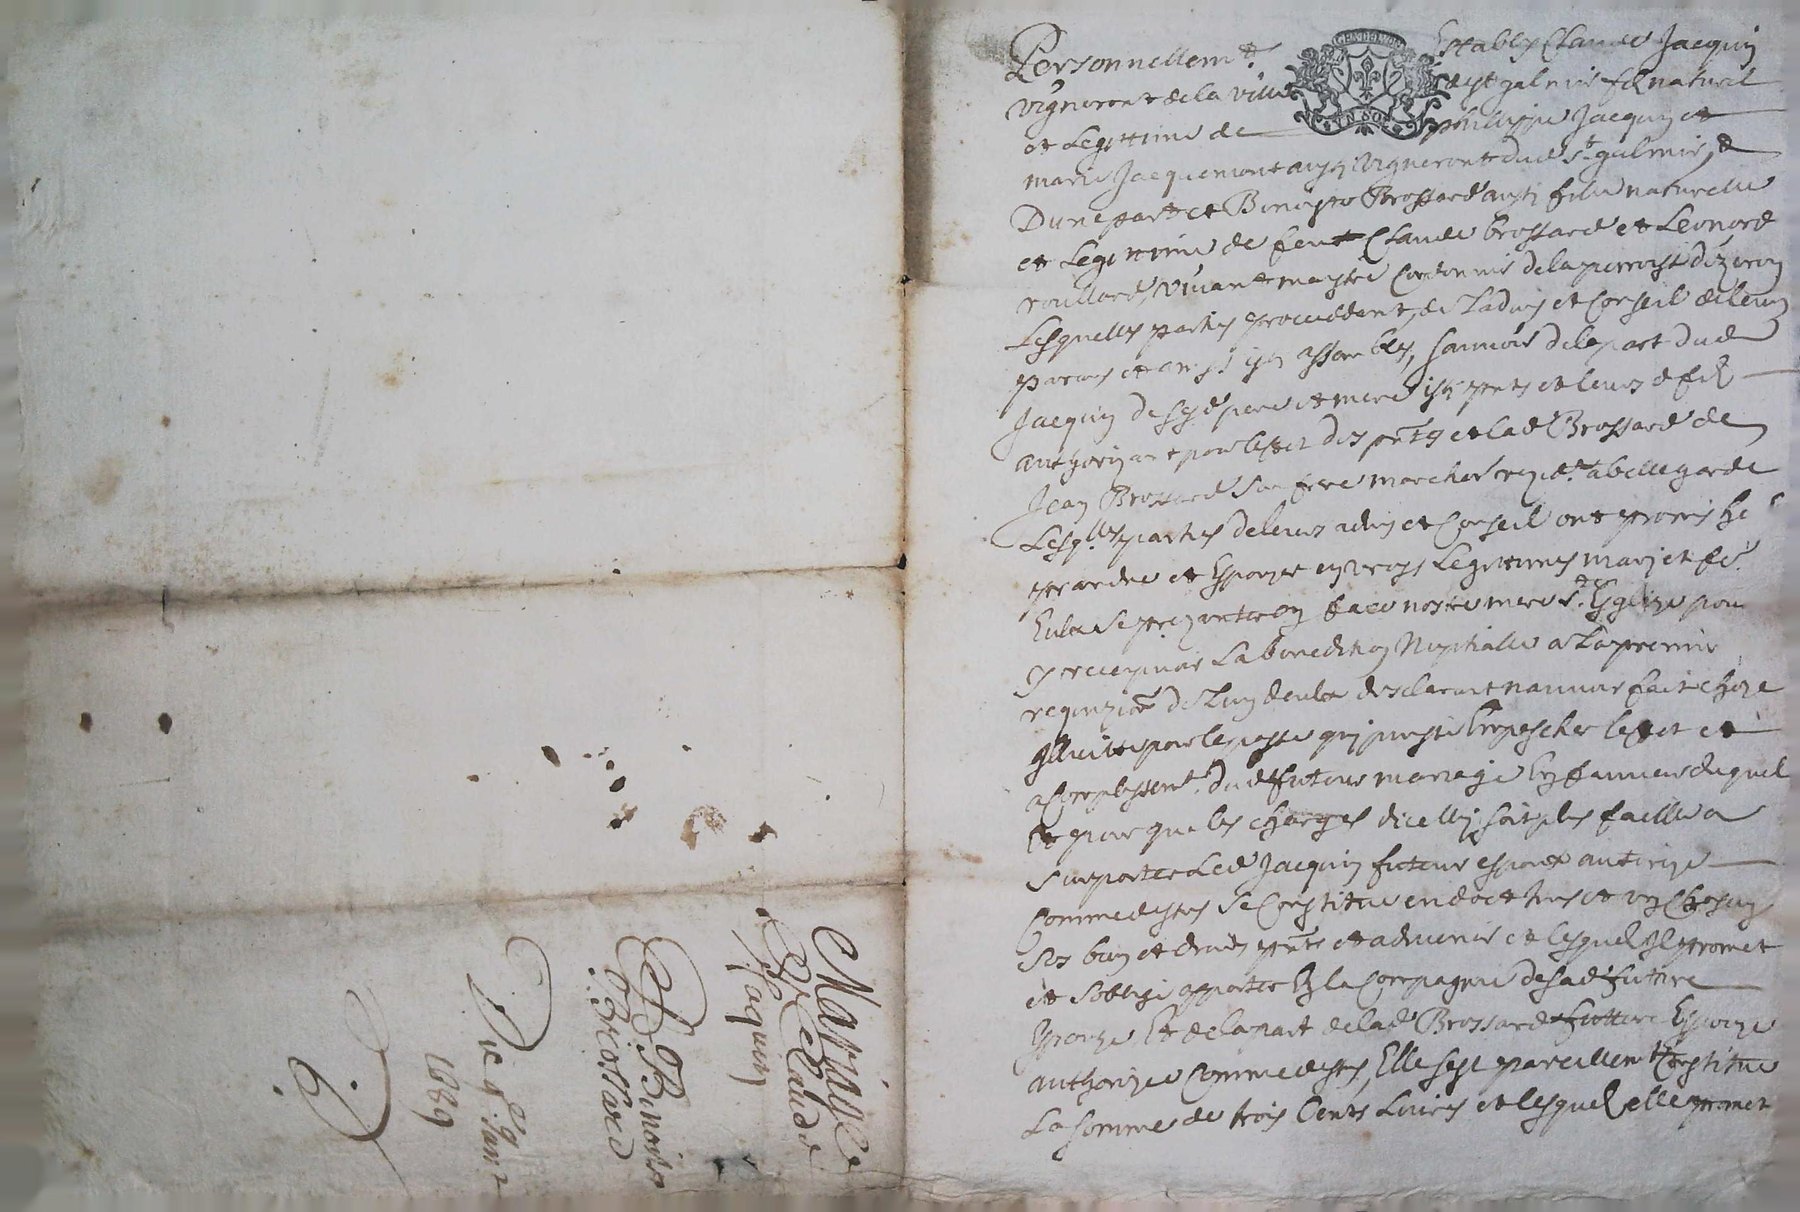 Mariage
De Claude
Jaquin
Et Benoiste
Brossard
De 8e Janv
1689
Personnellemt Estably Claude Jacquin
vigneront de la ville de St galmier filz naturel
et Legittime de philippe Jacquin et
marie Jacquemont aussy vigneront dud St galmier, d
Dune part et Benoiste Brossard aussy fille naturelle
et Legittime de feu Claude brossard et Leonord
roullard, vivant maystre Cordonnier de la parroisse
Lesquelles parties proceddent, de Ladvis et Conseil de leurs
parans et amys icy assembles, scavoir de la part dud
Jacquin de sesd pere et mere icy pnts et leurd filz
authorizant pour leffet des pntes et lad Brossard de
Jean Brossard son frere marchant rezidt a bellegarde
Lesqlles parties de leurs advis et Conseil ont promis se
prandre et Espouzer en vrays Legittimes mary et fe
Eulx se prezanteron face nostre mere Ste Esglize pour
y recepvoir La benediction Nuptialle a La premiere
requizion de Lun deulx desclarant navoir fait choze
par le passe quy puisse Empescher leffet et
acomplissemt dud futeur mariage En faveur duquel
Et pour que les charges dicelluy soit plus facille a
suporter Led Jacquin futeur espoux autorize
Comme dessus Se Constitue en dot tous et un Chascun
Ses biens et droits pnts et advenir et lesquel Il promet
et soblige apporter En la Compagnie de sad future
Espouze Et de la part de lad Brossard futture Espouze
authorizee Comme dessus, Elle sest pareillemt Constitue
La somme de trois Cents Livres et lesquel elle promet